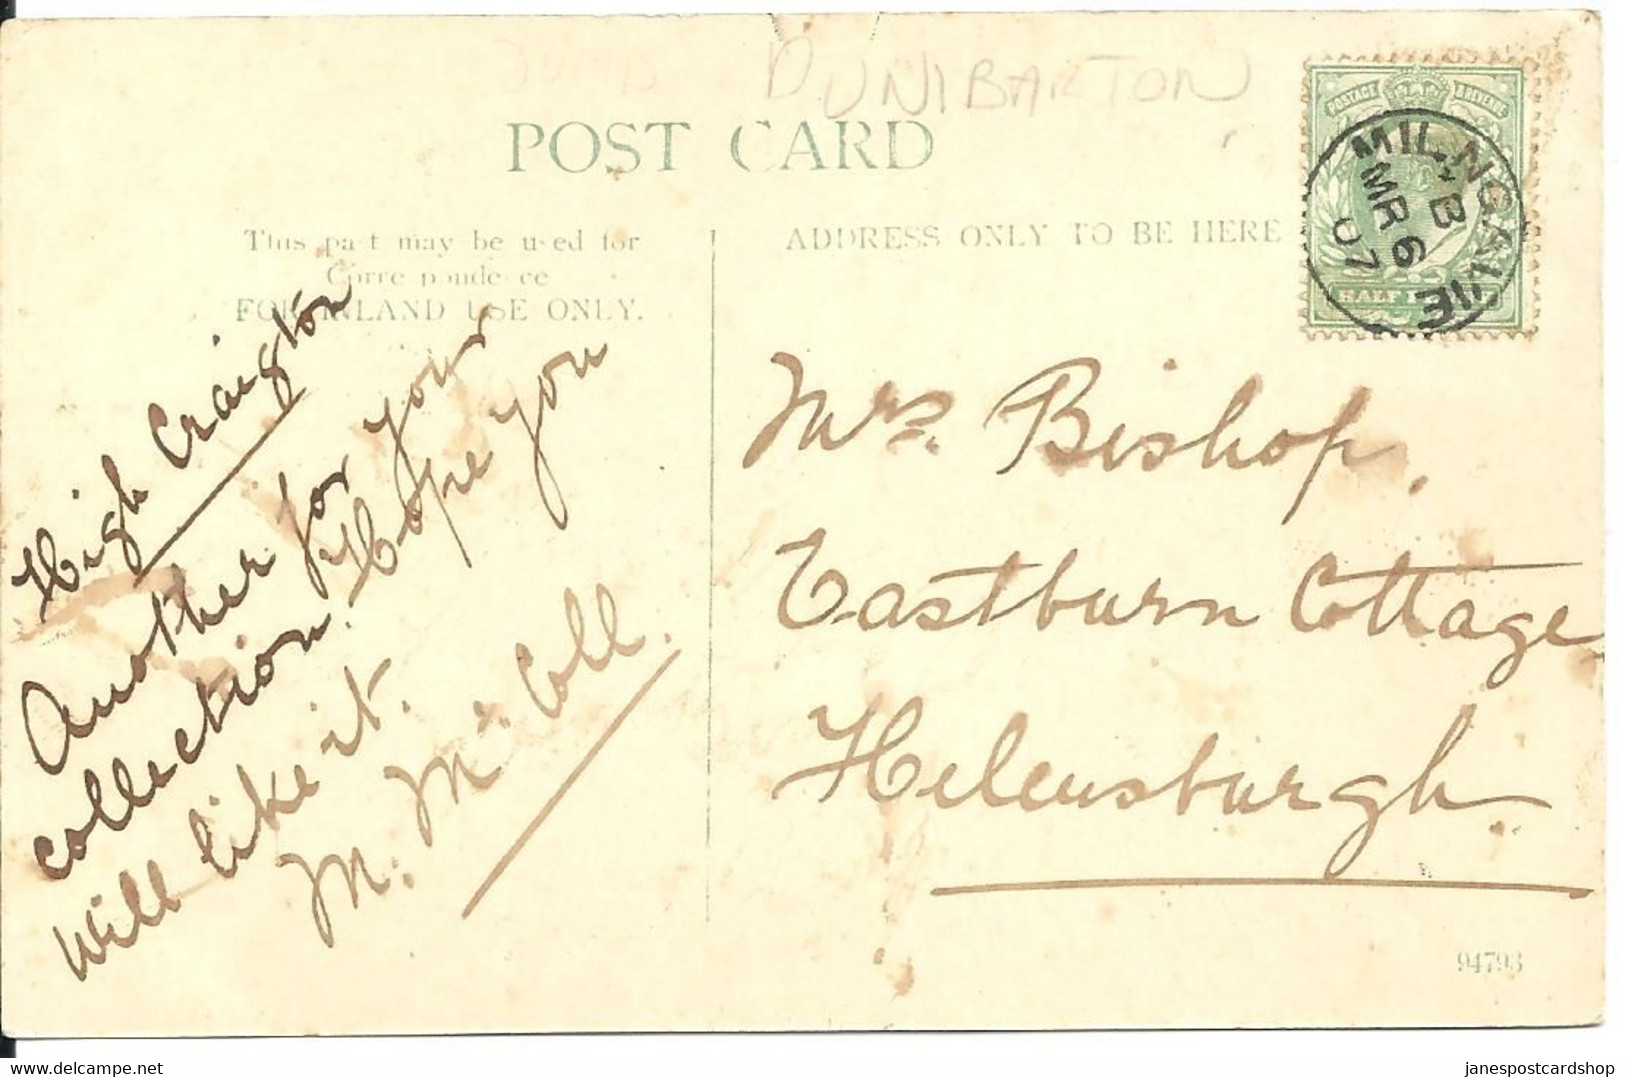 DUNIBARTON
POST CARD
This part may be used for
Correspondence
FOR INLAND USE ONLY.
ADDRESS ONLY TO BE HERE
POSTAGE & REVENUE
MILNGAVIE
B
MR 6
07
HALF
High Craigton
Another for your
collection. Hope you
will like it.
M. McColl.
Mrs. Bishop,
Eastburn Cottage
Helensburgh
94793
janespostcardshop